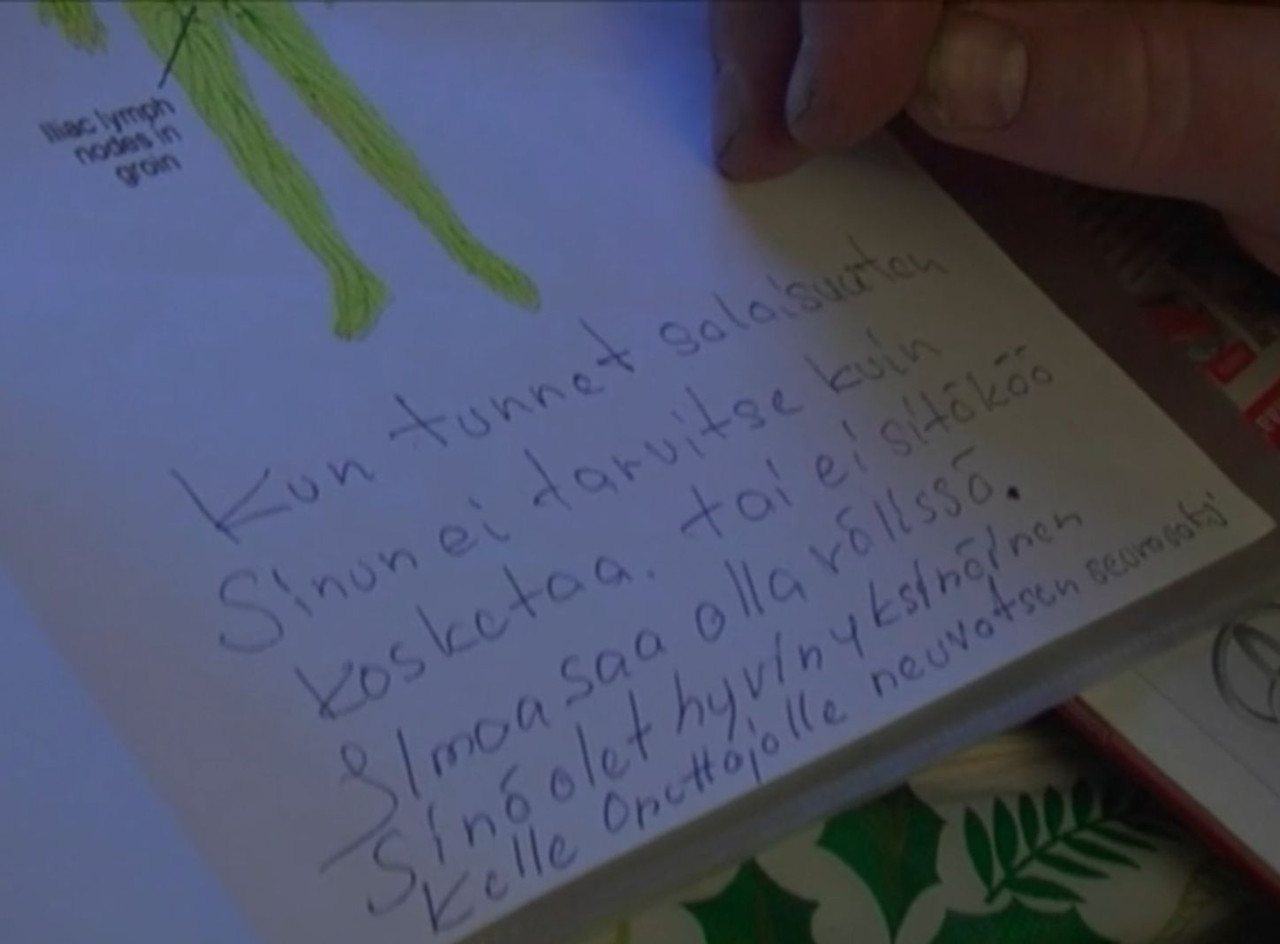 Iliac lymph
nodes in
groin
Kun tunnet salaisuuten
Sinun ei tarvitse kuin
kosketaa. tai ei sitäkää
Ilmoa saa olla rällssä.
Sinä olet hyvin yksinäinen
Kelle opettajalle neuvotsen